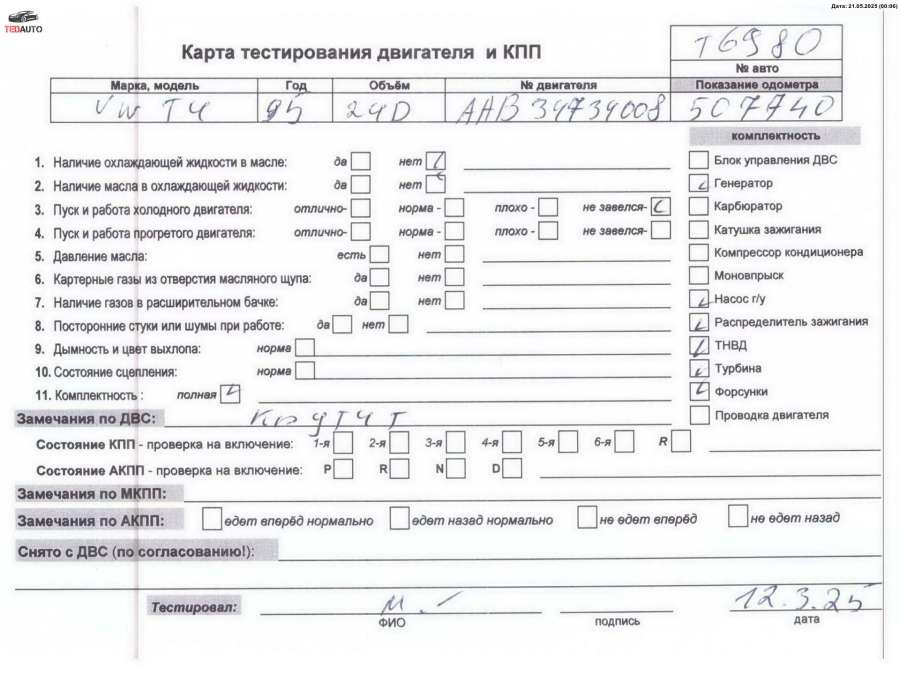 Дата: 21.05.2025 (00:06)
TEDAUTO
Карта тестирования двигателя и КПП
Т6980
№ авто
Марка, модель Год Объём № двигателя Показание одометра
VW T4 95 24D AAB 34734008 507740
комплектность
1. Наличие охлаждающей жидкости в масле: да нет
2. Наличие масла в охлаждающей жидкости: да нет
3. Пуск и работа холодного двигателя: отлично- норма - плохо - не завелся-
4. Пуск и работа прогретого двигателя: отлично- норма - плохо - не завелся-
5. Давление масла: есть нет
6. Картерные газы из отверстия масляного щупа: да нет
7. Наличие газов в расширительном бачке: да нет
8. Посторонние стуки или шумы при работе: да нет
9. Дымность и цвет выхлопа: норма
10. Состояние сцепления: норма
11. Комплектность : полная
Блок управления ДВС
Генератор
Карбюратор
Катушка зажигания
Компрессор кондиционера
Моновпрыск
Насос г/у
Распределитель зажигания
ТНВД
Турбина
Форсунки
Проводка двигателя
Замечания по ДВС: Крутит
Состояние КПП - проверка на включение: 1-я 2-я 3-я 4-я 5-я 6-я R
Состояние АКПП - проверка на включение: P R N D
Замечания по МКПП:
Замечания по АКПП: едет вперёд нормально едет назад нормально не едет вперёд не едет назад
Снято с ДВС (по согласованию!):
Тестировал: М. 12.3.25
ФИО подпись дата